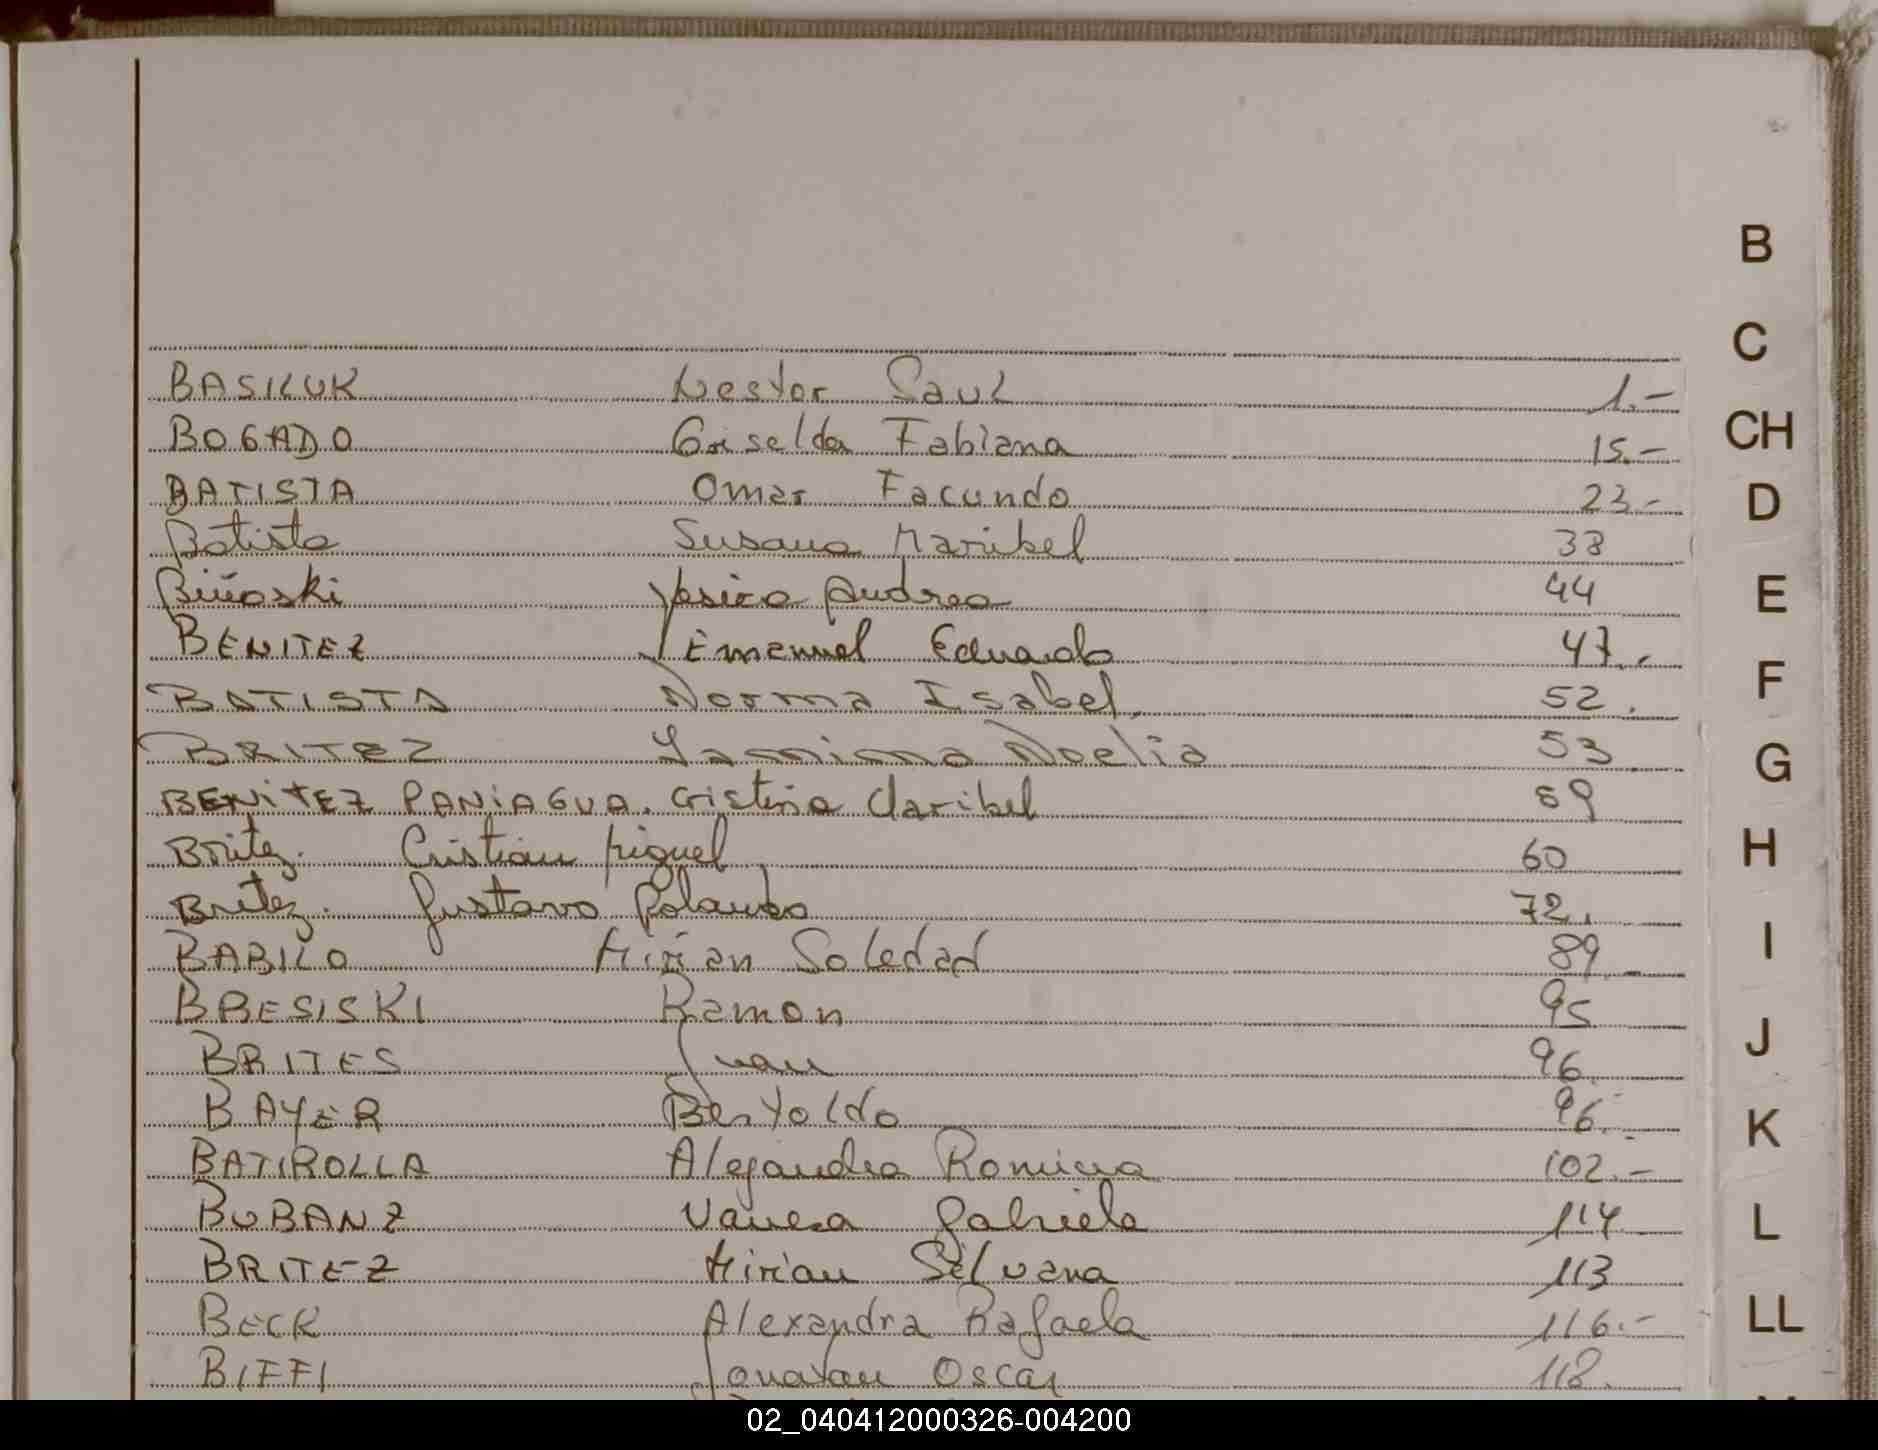 BASILUK Nestor Saul 1.-
BOGADO Griselda Fabiana 15.-
BATISTA Omar Facundo 23.-
Batista Susana Maribel 38
Yesica Andrea 44
BENITEZ Emanuel Eduardo 47.-
BATISTA Norma Isabel. 52.
BRITEZ Yamima Noelia 53
BENITEZ PANIAGUA. Cristina Claribel 59
Britez. Cristian Miguel 60
Britez. Gustavo Rolando 72.
BABILO Mirian Soledad 89
BRESISKI Ramon 95
BRITES Juan 96.
BAYER Bertoldo 96.-
BATIROLLA Alejandra Romina 102.-
BUBANZ Vanesa Gabriela 114
BRITEZ Mirian Silvana 113
BECK Alexandra Rafaela 116.-
BIFFI Jonatan Oscar 118.
B
C
CH
D
E
F
G
H
I
J
K
L
LL
02_040412000326-004200